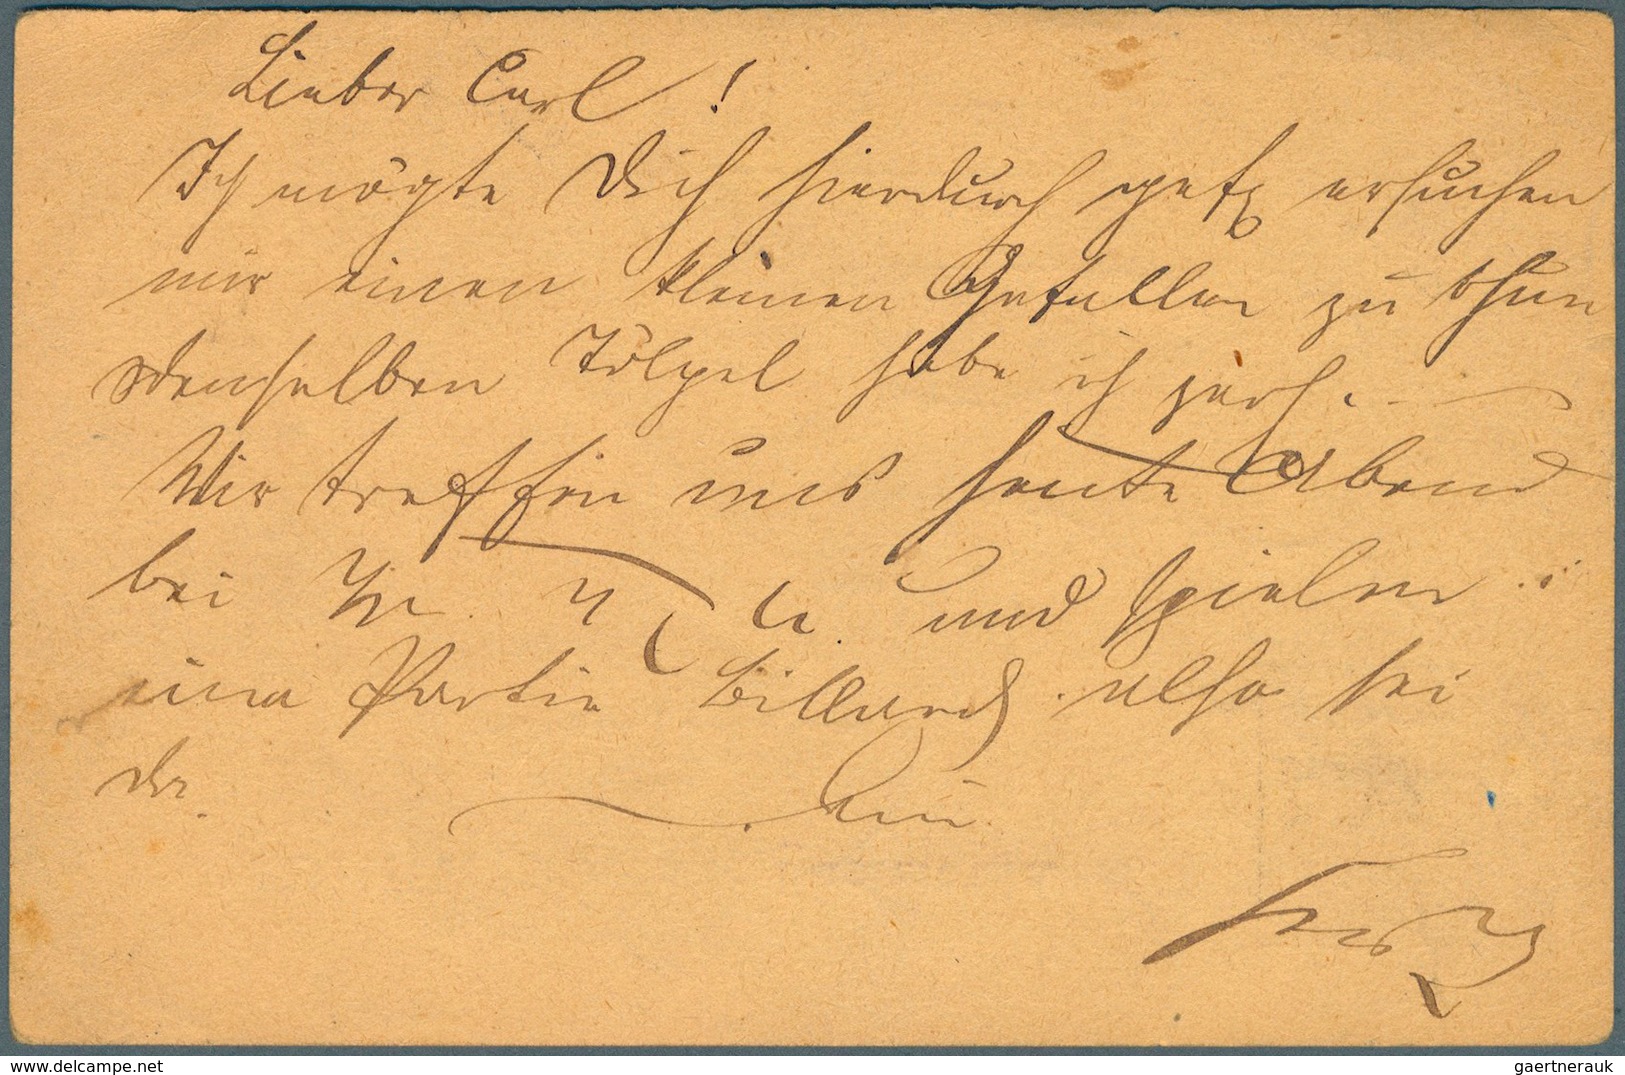 Lieber Carl!
Ich mögte Dich hierdurch ersuchen
mir einen kleinen Gefallen zu thun
denselben Tölpel habe ich
Wir treffen uns heute Abend
bei und spielen
eine Partie Billard also sei
da.
Dein
www.delcampe.net
gaertnerauk